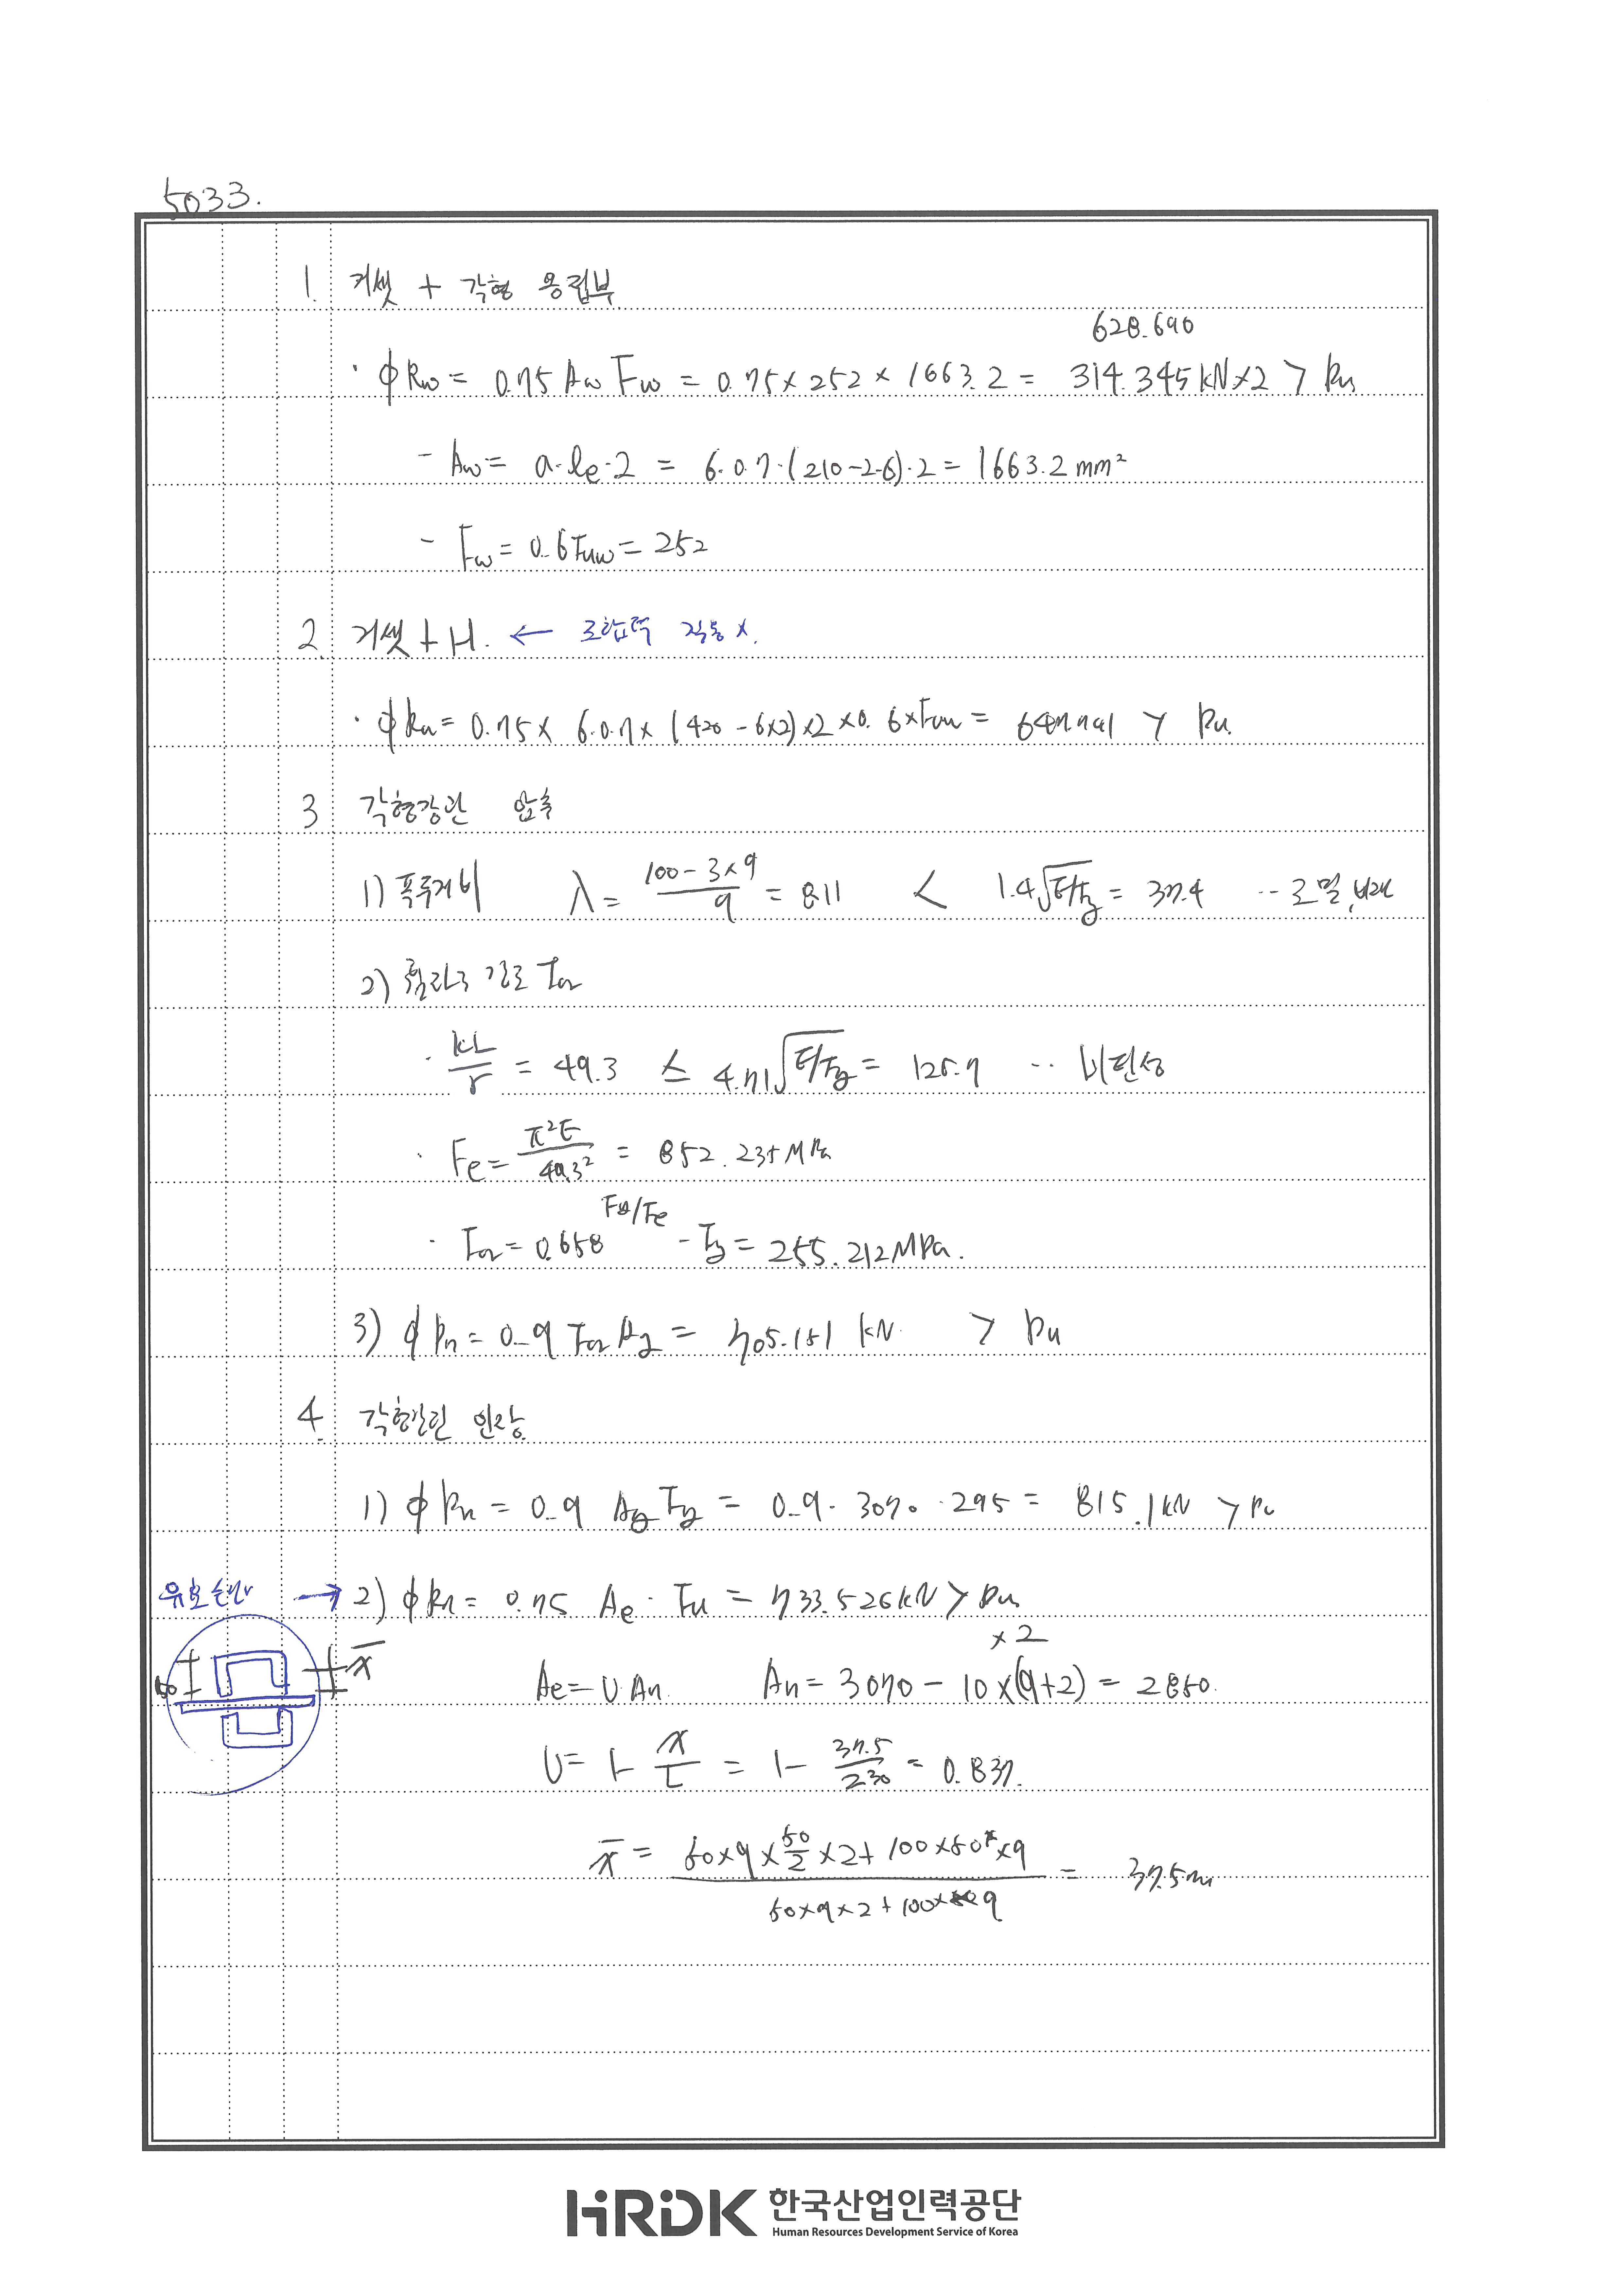 5033.
1. 거셋 + 각형 용접부
628.690
· φRw = 0.75 Aw Fw = 0.75 × 252 × 1663.2 = 314.345 kN ×2 > Pu
- Aw = a·le·2 = 6·0.7·(210-2·6)·2 = 1663.2 mm²
- Fw = 0.6Fuw = 252
2. 거셋 + H. ← 조합력 작용 x.
· φRn = 0.75 × 6·0.7 × (420 - 6×2)×2 × 0.6×Fuw = 647.741 > Pu.
3 각형강관 압축
1) 폭두께비 λ = (100 - 3×9)/9 = 8.11 < 1.4√E/Fy = 37.4 ·· 조밀, 비세
2) 휨좌굴 강도 Fcr
· KL/r = 49.3 ≤ 4.71√E/Fy = 125.7 ·· 비탄성
· Fe = π²E/49.3² = 852.235 MPa
· Fcr = 0.658^(Fy/Fe) · Fy = 255.212 MPa.
3) φPn = 0.9 Fcr Ag = 705.151 kN. > Pu
4. 각형강관 인장.
1) φPn = 0.9 Ag Fy = 0.9 · 3070 · 295 = 815.1 kN > Pu
유효순단 → 2) φPn = 0.75 Ae · Fu = 733.526 kN > Pu
×2
50 x̄ Ae = U An. An = 3070 - 10×(9+2) = 2850.
U = 1 - x̄/L = 1 - 37.5/230 = 0.837.
x̄ = (50×9×50/2×2 + 100×50×9)/(50×9×2 + 100×9) = 37.5 mm
HRDK 한국산업인력공단
Human Resources Development Service of Korea